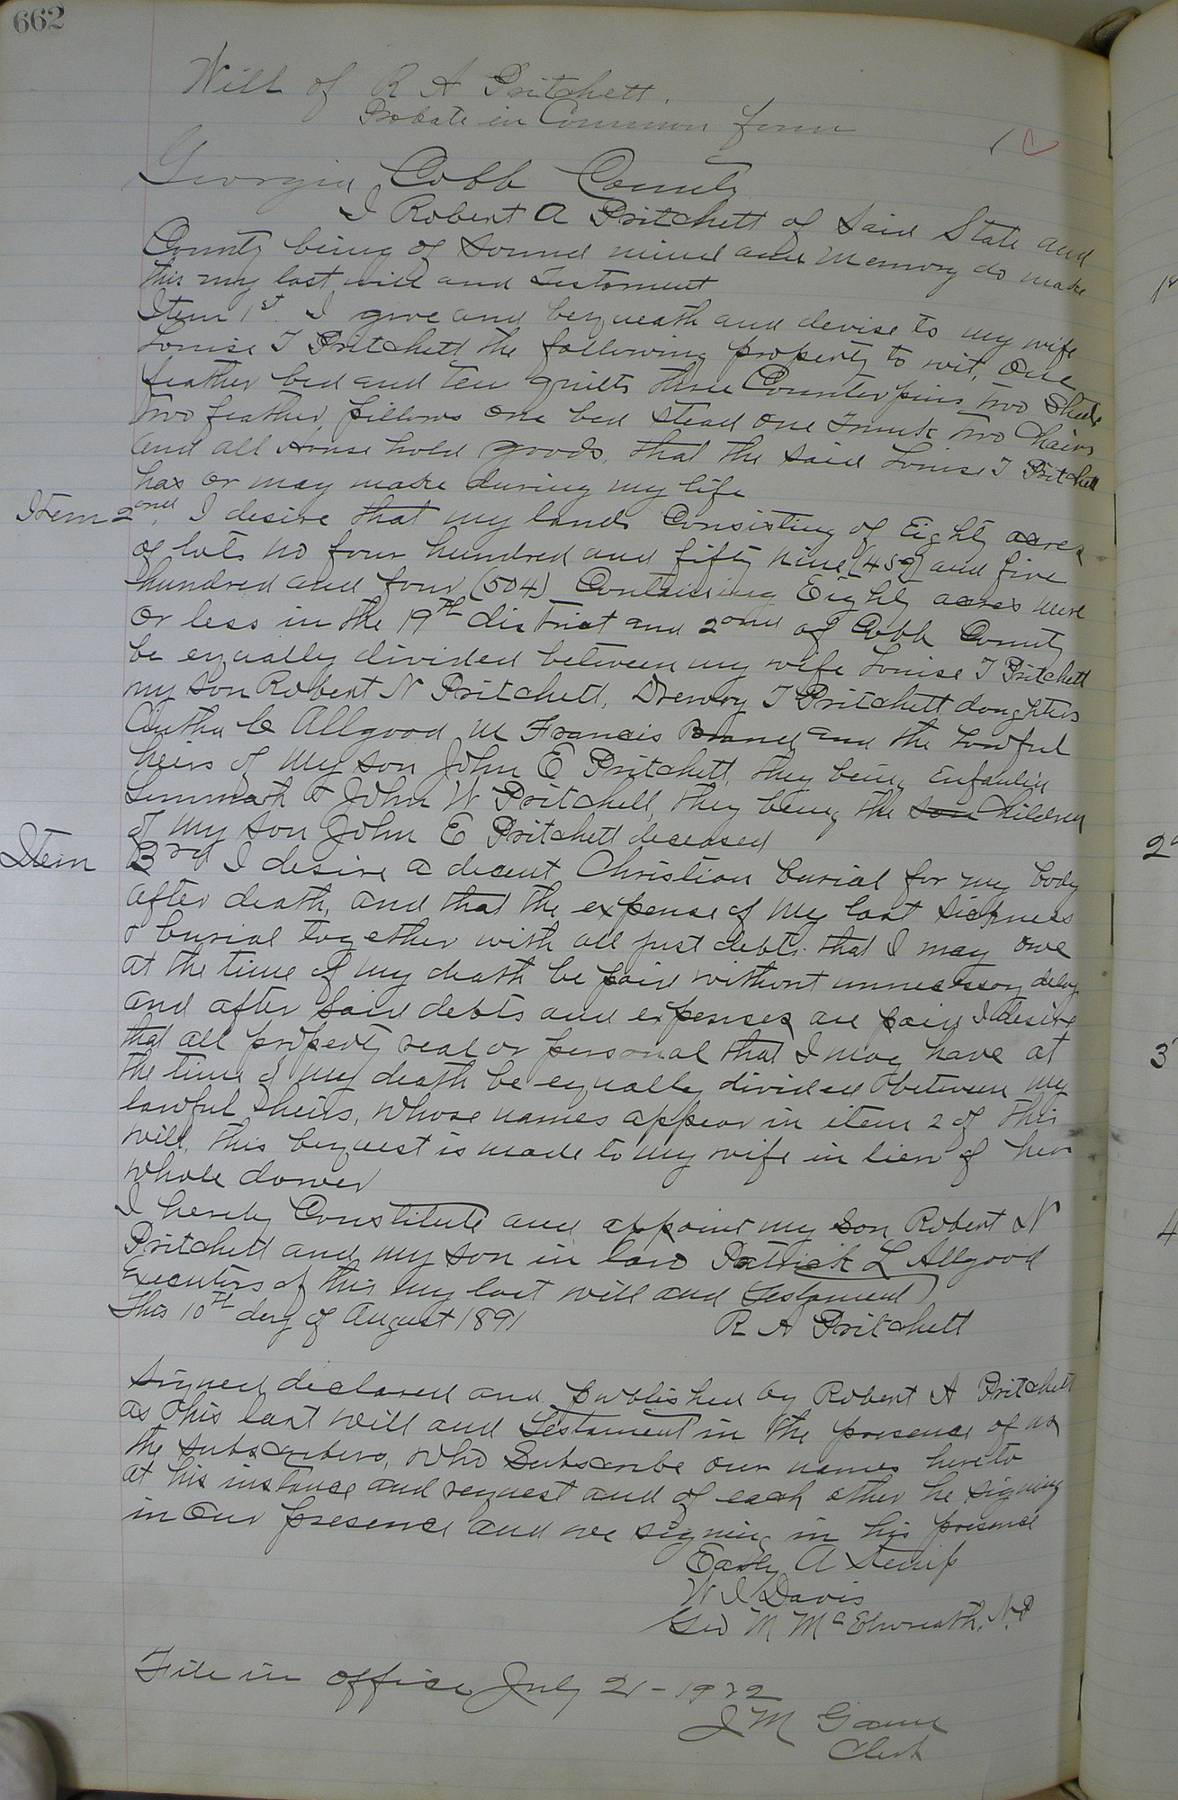 662
Will of R A Pritchett.
Probate in Common form
Georgia Cobb County
I Robert A Pritchett of Said State and
County being of Sound mind and Memory do make
this my last will and Testament
Item 1st. I give and bequeath and devise to my wife
Louise T Pritchett the following property to wit, One
feather bed and ten quilts three Counterpins two Sheets
two feather pillows one bed Stead one Trunk two Chairs
and all House hold goods, that the Said Louise T Pritchett
has or may make during my life
Item 2ond. I desire that my lands Consisting of Eighty acres
of lots no four hundred and fifty nine (459) and five
hundred and four (504) Containing Eighty acres more
or less in the 19th district and 2ond of Cobb County
be equally divided between my wife Louise T Pritchett
my Son Robert N Pritchett, Drewry T Pritchett daughters
C Allgood M Francis and the Lowful
heirs of My Son John E Pritchett, they being
& John W Pritchett, they being the Son Children
of my Son John E Pritchett deceased
Item 3rd I desire a decent Christian burial for my body
after death, and that the expense of My last Sickness
& burial together with all just debts that I may owe
at the time of my death be paid without unnecessary delay
and after Said debts and expenses are paid I desire
that all property real or personal that I may have at
the time of my death be equally divided between my
lawful heirs, whose names appear in item 2 of this
will, this bequest is made to my wife in lieu of her
whole dower
I hereby Constitute and appoint my Son Robert N
Pritchett and my Son in law Patrick L Allgood
Executors of this my last will and Testament
This 10th day of August 1891
R A Pritchett
Signed declared and published by Robert A Pritchett
as this last will and Testament in the presence of us
the Subscribers, who Subscribe our names hereto
at his instance and request and of each other he signing
in our presence and we signing in his presence
A Kemp
W I Davis
Geo M McElwreath, N.P
File in office July 21 - 1922
J M Gann
Clerk
2
3
4